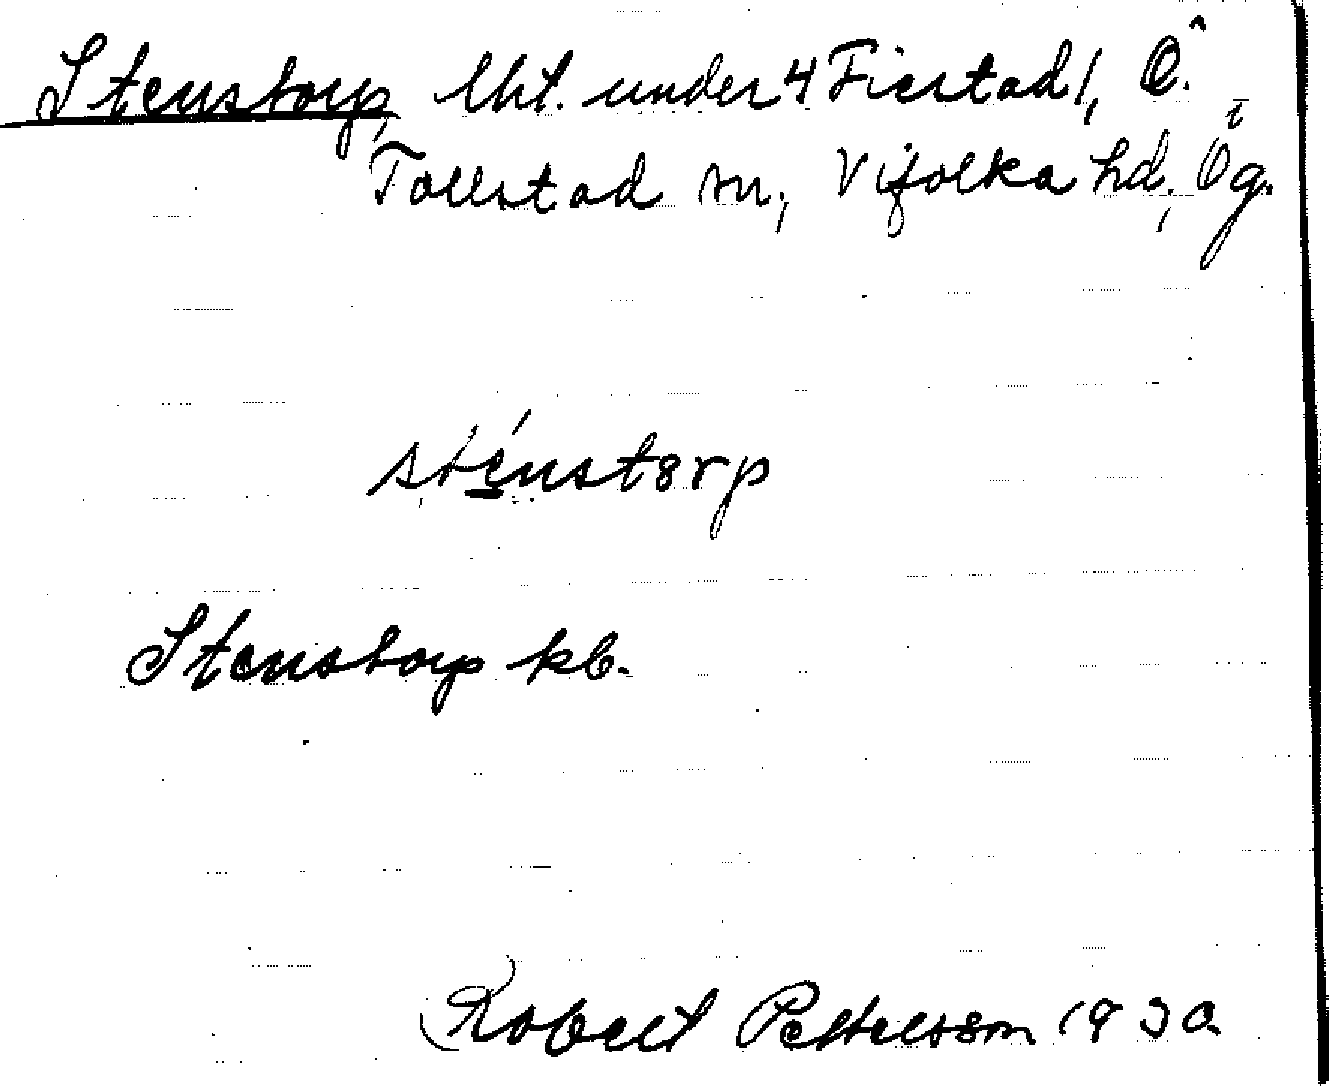 Stenstorp, lht. under 4 Fierstad 1, Ö.
Tollstad sn, Vifolka hd, Ög.
sténstorp
Stenstorp kb.
Robert Pettersson 1930